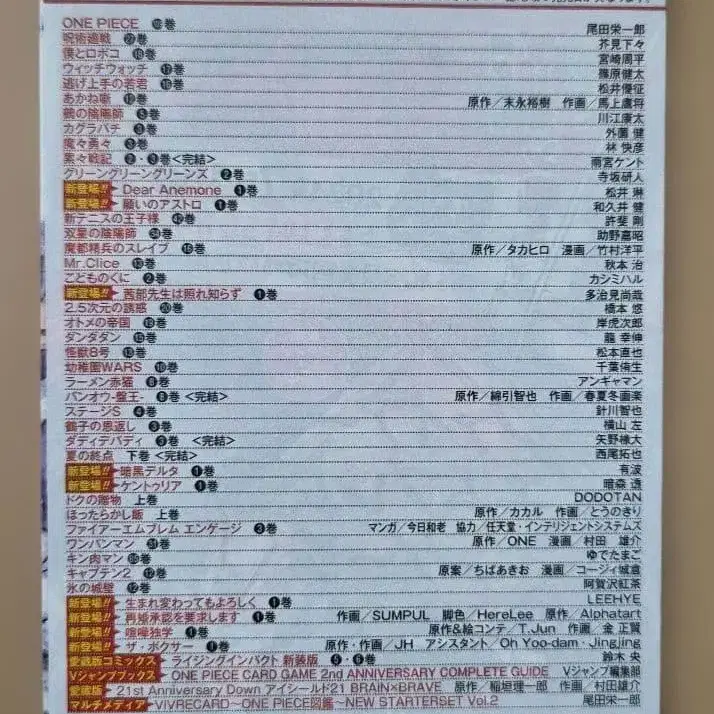 ONE PIECE 巻 尾田栄一郎
呪術廻戦 巻 芥見下々
僕とロボコ 巻 宮崎周平
ウィッチウォッチ 巻 篠原健太
逃げ上手の若君 巻 松井優征
あかね噺 巻 原作/末永裕樹 作画/馬上鷹将
鵺の陰陽師 巻 川江康太
カグラバチ 巻 外薗 健
魔々勇々 ❸巻 林 快彦
累々戦記 ❷・❸巻<完結> 雨宮ケント
グリーングリーングリーンズ ❷巻 寺坂研人
新登場!! Dear Anemone ❶巻 松井 琳
新登場!! 願いのアストロ ❶巻 和久井 健
新テニスの王子様 巻 許斐 剛
双星の陰陽師 巻 助野嘉昭
魔都精兵のスレイブ 巻 原作/タカヒロ 漫画/竹村洋平
Mr.Clice 巻 秋本 治
こどものくに ❷巻 カシミハル
新登場!! 茜部先生は照れ知らず ❶巻 多治見尚哉
2.5次元の誘惑 巻 橋本 悠
オトメの帝国 巻 岸虎次郎
ダンダダン 巻 龍 幸伸
怪獣8号 巻 松本直也
幼稚園WARS 巻 千葉侑生
ラーメン赤猫 巻 アンギャマン
バンオウ-盤王- 巻<完結> 原作/綿引智也 作画/春夏冬画楽
ステージS ❹巻 針川智也
鶴子の恩返し ❸巻 横山 左
ダディデバディ ❸巻 <完結> 矢野棟大
夏の終点 下巻<完結> 西尾拓也
新登場!! 暗黒デルタ ❶巻 有波
新登場!! ケントゥリア ❶巻 暗森 透
ドクの贈物 上巻 DODOTAN
ほったらかし飯 上巻 原作/カカル 作画/とうのきり
ファイアーエムブレム エンゲージ ❸巻 マンガ/今日和老 協力/任天堂・インテリジェントシステムズ
ワンパンマン 巻 原作/ONE 漫画/村田 雄介
キン肉マン 巻 ゆでたまご
キャプテン2 巻 原案/ちばあきお 漫画/コージィ城倉
氷の城壁 ⓬巻 阿賀沢紅茶
新登場!! 生まれ変わってもよろしく ❶巻 LEEHYE
新登場!! 再婚承認を要求します ❶巻 作画/SUMPUL 脚色/HereLee 原作/Alphatart
新登場!! 喧嘩独学 ❶巻 原作&絵コンテ/T.Jun 作画/金 正賢
新登場!! ザ・ボクサー ❶巻 原作・作画/JH アシスタント/Oh Yoo-dam・Jingjing
愛蔵版コミックス ライジングインパクト 新装版 ❺・❻巻 鈴木 央
Vジャンプブックス ONE PIECE CARD GAME 2nd ANNIVERSARY COMPLETE GUIDE Vジャンプ編集部
愛蔵版 21st Anniversary Down アイシールド21 BRAIN×BRAVE 原作/稲垣理一郎 作画/村田雄介
マルチメディア VIVRECARD〜ONE PIECE図鑑〜NEW STARTERSET Vol.2 尾田栄一郎